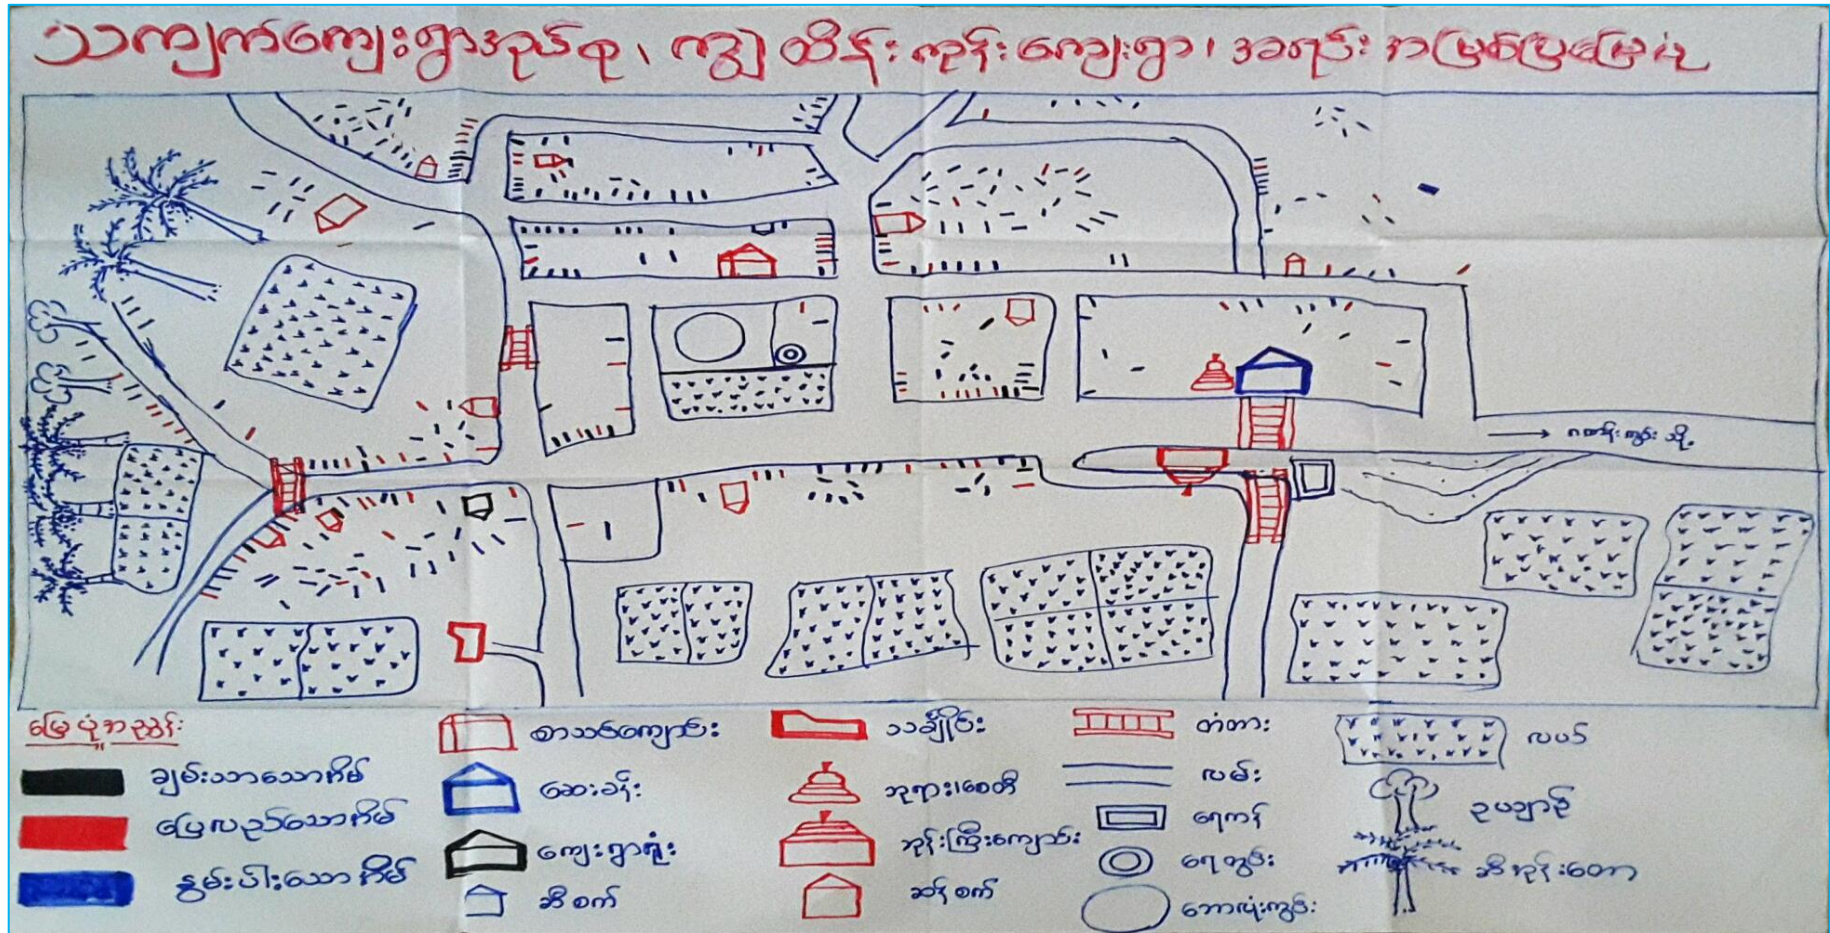 သကျက်ကျေးရွာအုပ်စု၊ ကျွဲထိန်းကုန်းကျေးရွာ၊ အရင်းအမြစ်ပြမြေပုံ
ဂဏန်းကွင်းသို့
မြေပုံအညွှန်း
ချမ်းသာသောအိမ်
ပြေလည်သောအိမ်
နွမ်းပါးသောအိမ်
စာသင်ကျောင်း
ဆေးခန်း
ကျေးရွာရုံး
ဆီစက်
သင်္ချိုင်း
ဘုရား၊စေတီ
ဘုန်းကြီးကျောင်း
ဆန်စက်
တံတား
လမ်း
ရေကန်
ရေတွင်း
ဘောလုံးကွင်း
လယ်
ဥယျာဉ်
ဆီအုန်းတော